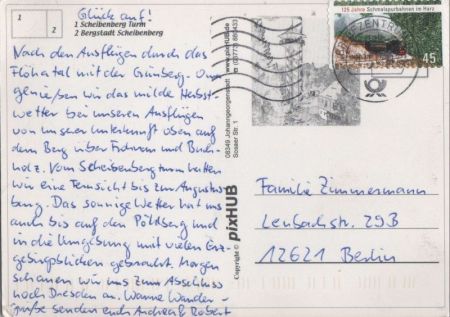 Glück auf!
1 2
1 Scheibenberg Turm
2 Bergstadt Scheibenberg
Nach den Ausflügen durch das
Flöhatal mit der Grünberg-
genießen wir das milde Herbst-
wetter bei unseren Ausflügen
von unserer Unterkunft oben auf
dem Berg über Frohnau und Buch-
holz. Vom Scheibenbergturm hatten
wir eine Fernsicht bis zur Augustus-
burg. Das sonnige Wetter hat uns
auch bis auf den Pöhlberg und
in die Umgebung mit vielen Erz-
gebirgsblicken gebracht. Morgen
schauen wir uns zum Abschluss
noch Dresden an. Warme Wander-
grüße senden euch Andrea & Robert
Copyright © pixHUB
08349 Johanngeorgenstadt www.pixhub.de
Sosaer Str. 1
125 Jahre Schmalspurbahnen im Harz
45
BRIEFZENTRUM
Familie Zimmermann
Lenbachstr. 29B
12621 Berlin